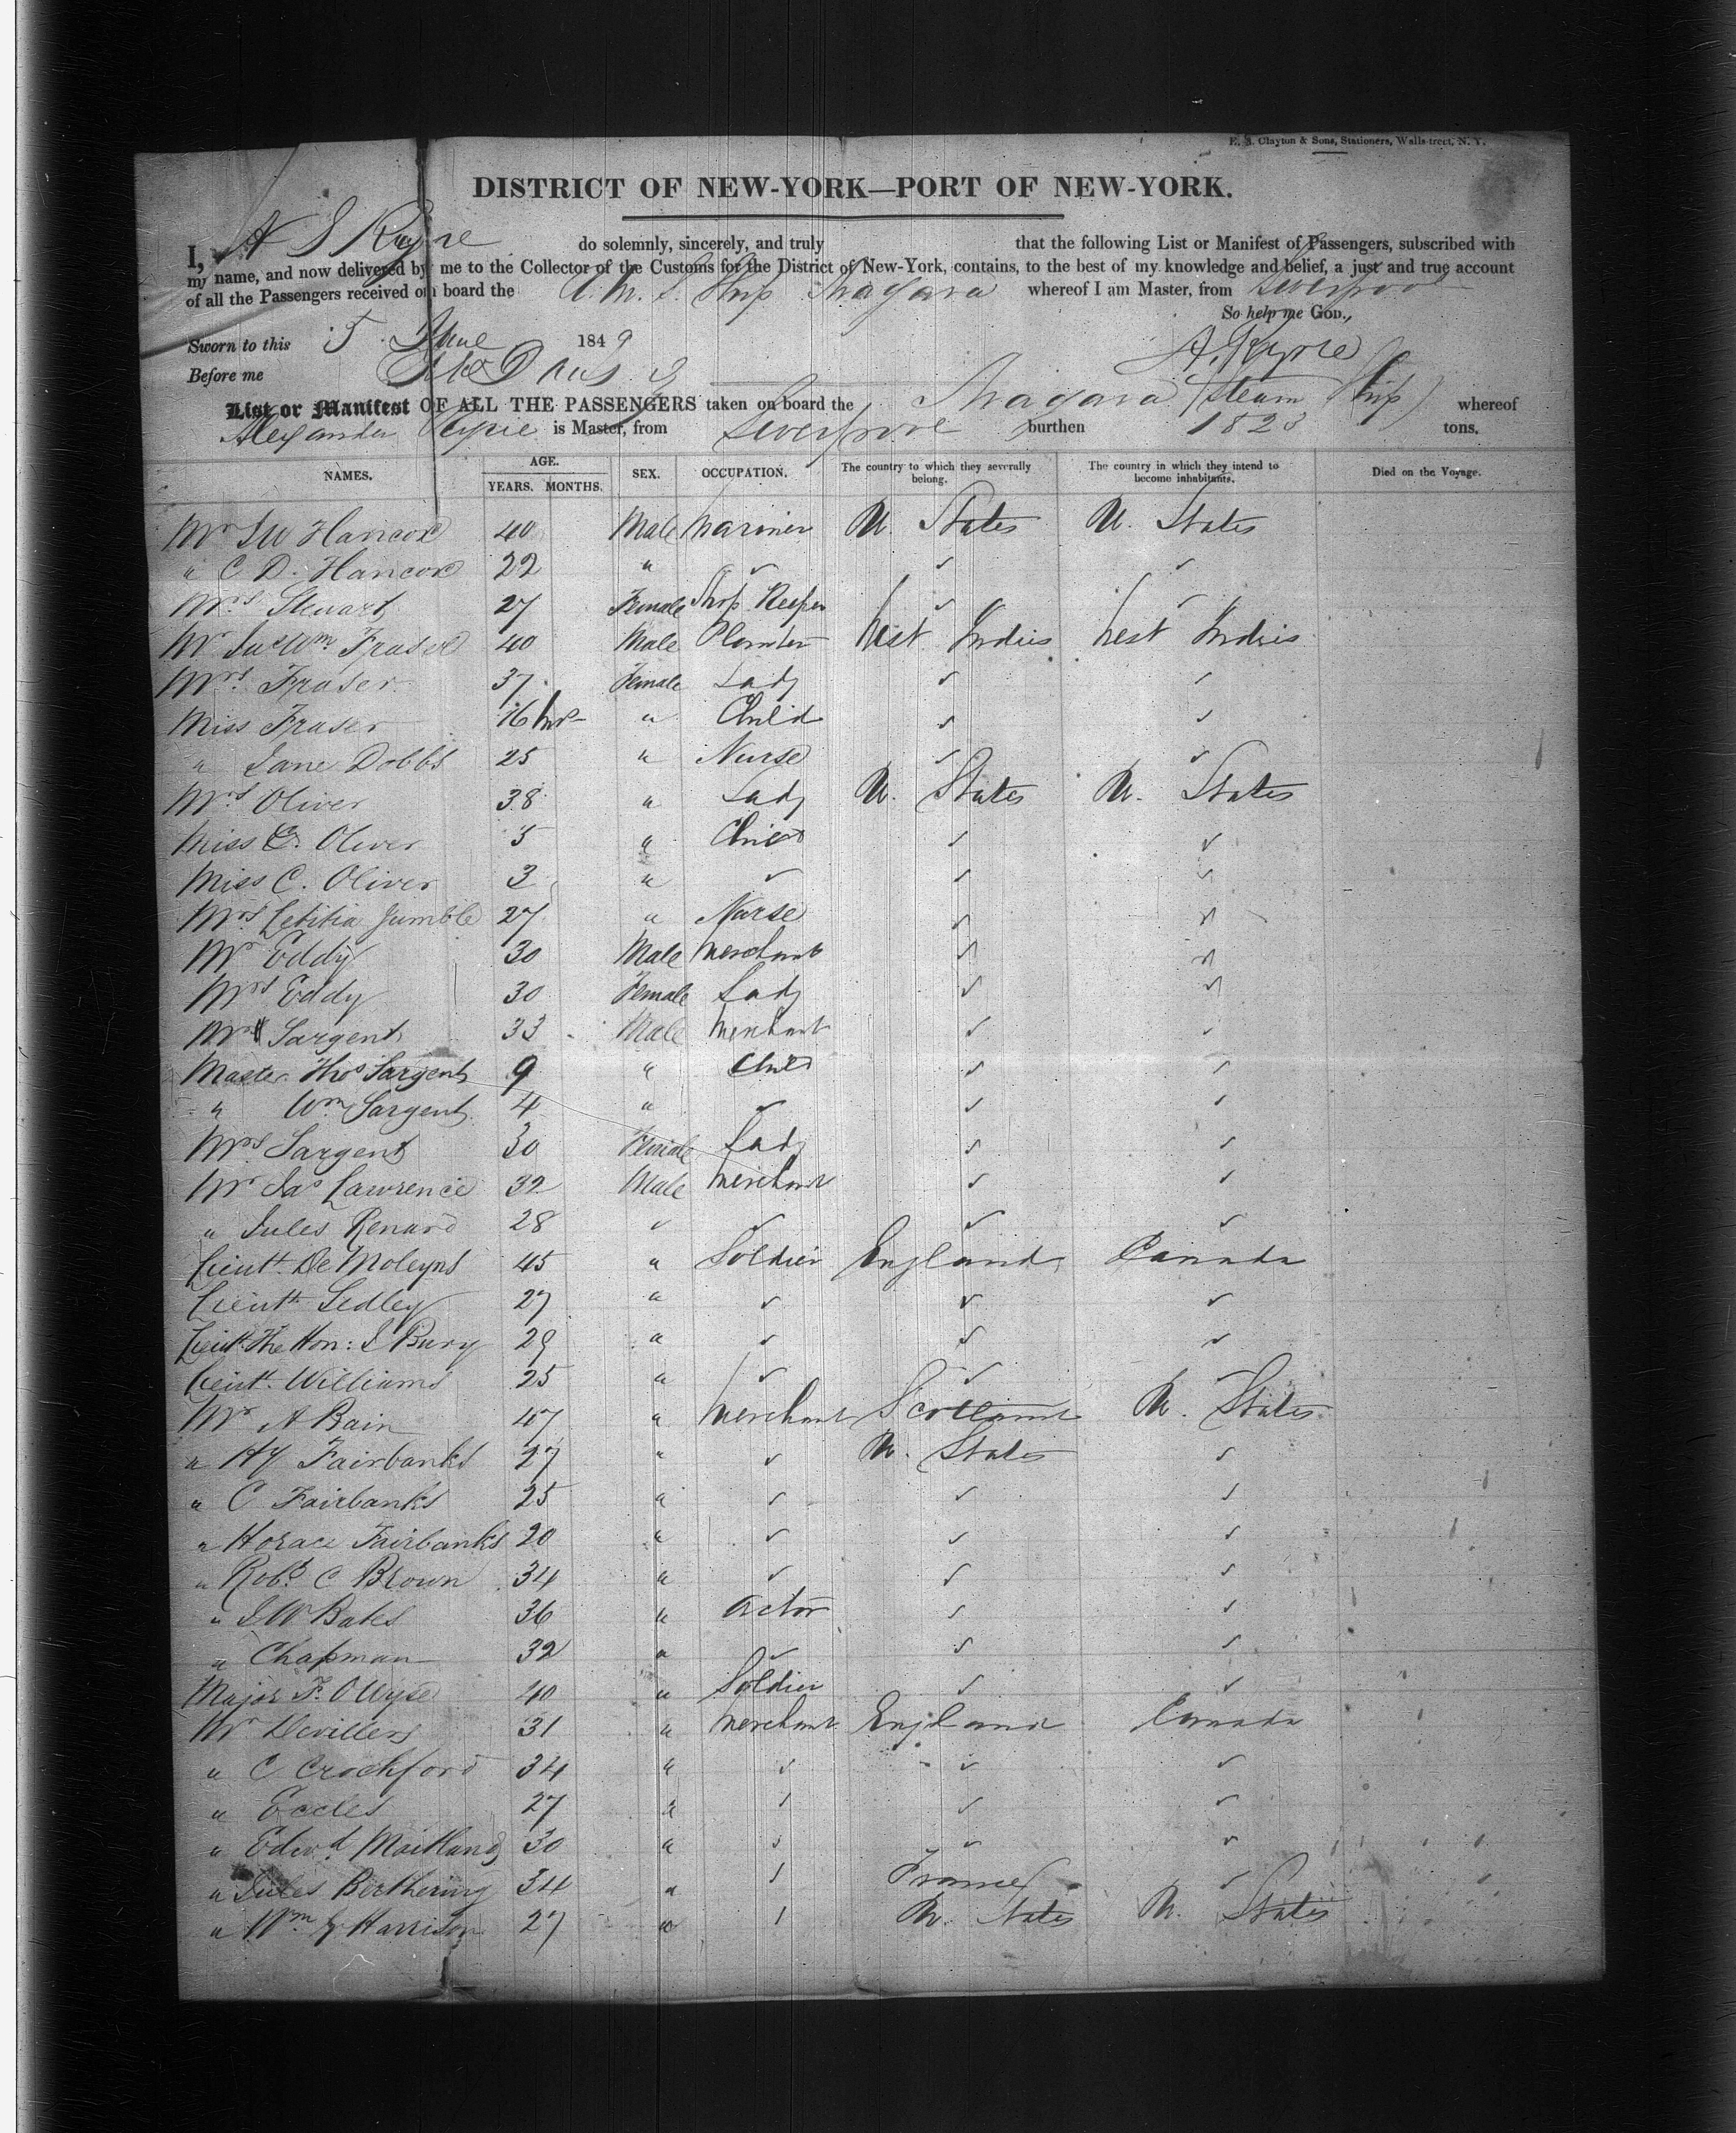 E. B. Clayton & Sons, Stationers, Wall-street, N. Y.
DISTRICT OF NEW-YORK—PORT OF NEW-YORK.
I, A do solemnly, sincerely, and truly that the following List or Manifest of Passengers, subscribed with
my name, and now delivered by me to the Collector of the Customs for the District of New-York, contains, to the best of my knowledge and belief, a just and true account
of all the Passengers received on board the Ship Niagara whereof I am Master, from Liverpool
So help me GOD.
Sworn to this 5 June 1849 A. Ryrie
Before me
List or Manifest OF ALL THE PASSENGERS taken on board the Niagara (Steam Ship) whereof
Alexander Ryrie is Master, from Liverpool burthen 1823 tons.
NAMES. AGE. YEARS. MONTHS. SEX. OCCUPATION. The country to which they severally belong. The country in which they intend to become inhabitants. Died on the Voyage.
Mr Hancox 40 Male Mariner U. States U. States
" C D. Hancox 22 " ✓ ✓ ✓
Mrs Stewart 27 Female Shop Keeper ✓ ✓
Mr Jas Wm Fraser 40 Male Planter West Indies West Indies
Mrs Fraser 37 Female Lady ✓ ✓
Miss Fraser 16 mos " Child ✓ ✓
" Jane Dobbs 25 " Nurse ✓ ✓
Mrs Oliver 38 " Lady U. States U. States
Miss Oliver 5 " Child ✓ ✓
Miss C. Oliver 3 " ✓ ✓ ✓
Mrs Letitia Jumble 27 " Nurse ✓ ✓
Mr Eddy 30 Male Merchant ✓ ✓
Mrs Eddy 30 Female Lady ✓ ✓
Mr Sargent 33 Male Merchant ✓ ✓
Master Thos Sargent 9 " Child ✓ ✓
" Wm Sargent 4 " ✓ ✓ ✓
Mrs Sargent 30 Female Lady ✓ ✓
Mr Jas Lawrence 32 Male Merchant ✓ ✓
" Jules Renard 28 ✓ ✓ ✓ ✓
Lieutt. De Moleyns 45 " Soldier England Canada
Lieutt. Sedley 27 " ✓ ✓ ✓
Lieutt. The Hon: Bury 29 " ✓ ✓ ✓
Lieutt. Williams 25 " ✓ ✓ ✓
Mr A Bain 47 " Merchant Scotland U. States
" Hy Fairbanks 27 " ✓ U. States ✓
" C Fairbanks 25 " ✓ ✓ ✓
" Horace Fairbanks 20 " ✓ ✓ ✓
" Robt C Brown 34 " ✓ ✓ ✓
" J W Bates 36 " Actor ✓ ✓
" Chapman 32 " ✓ ✓ ✓
Major F. O Wyse 40 " Soldier ✓ ✓
Mr Devillers 31 " Merchant England Canada
" C Crockford 34 " ✓ ✓ ✓
" Eccles 27 " ✓ ✓ ✓
" Edwd Maitland 30 " ✓ ✓ ✓
" Jules 34 " ✓ France ✓
" Wm Harrison 27 " ✓ U. States U. States